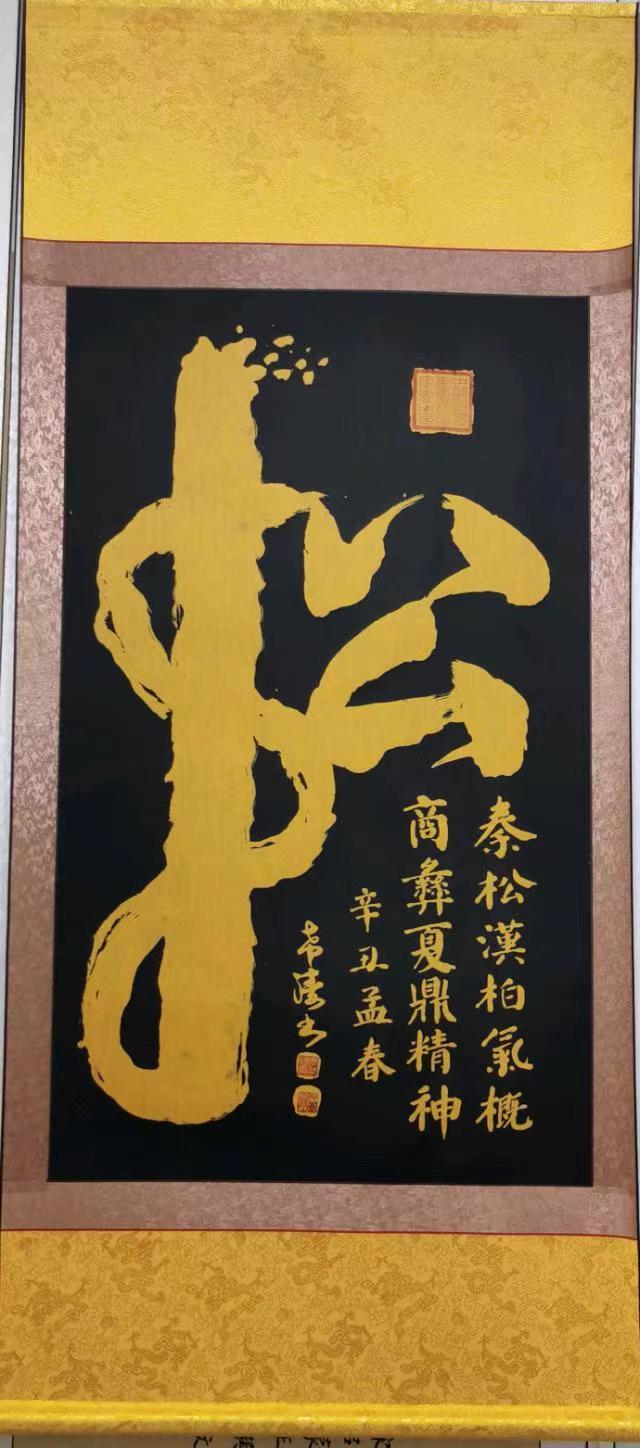 松
秦松漢柏氣概
商彝夏鼎精神
辛丑孟春